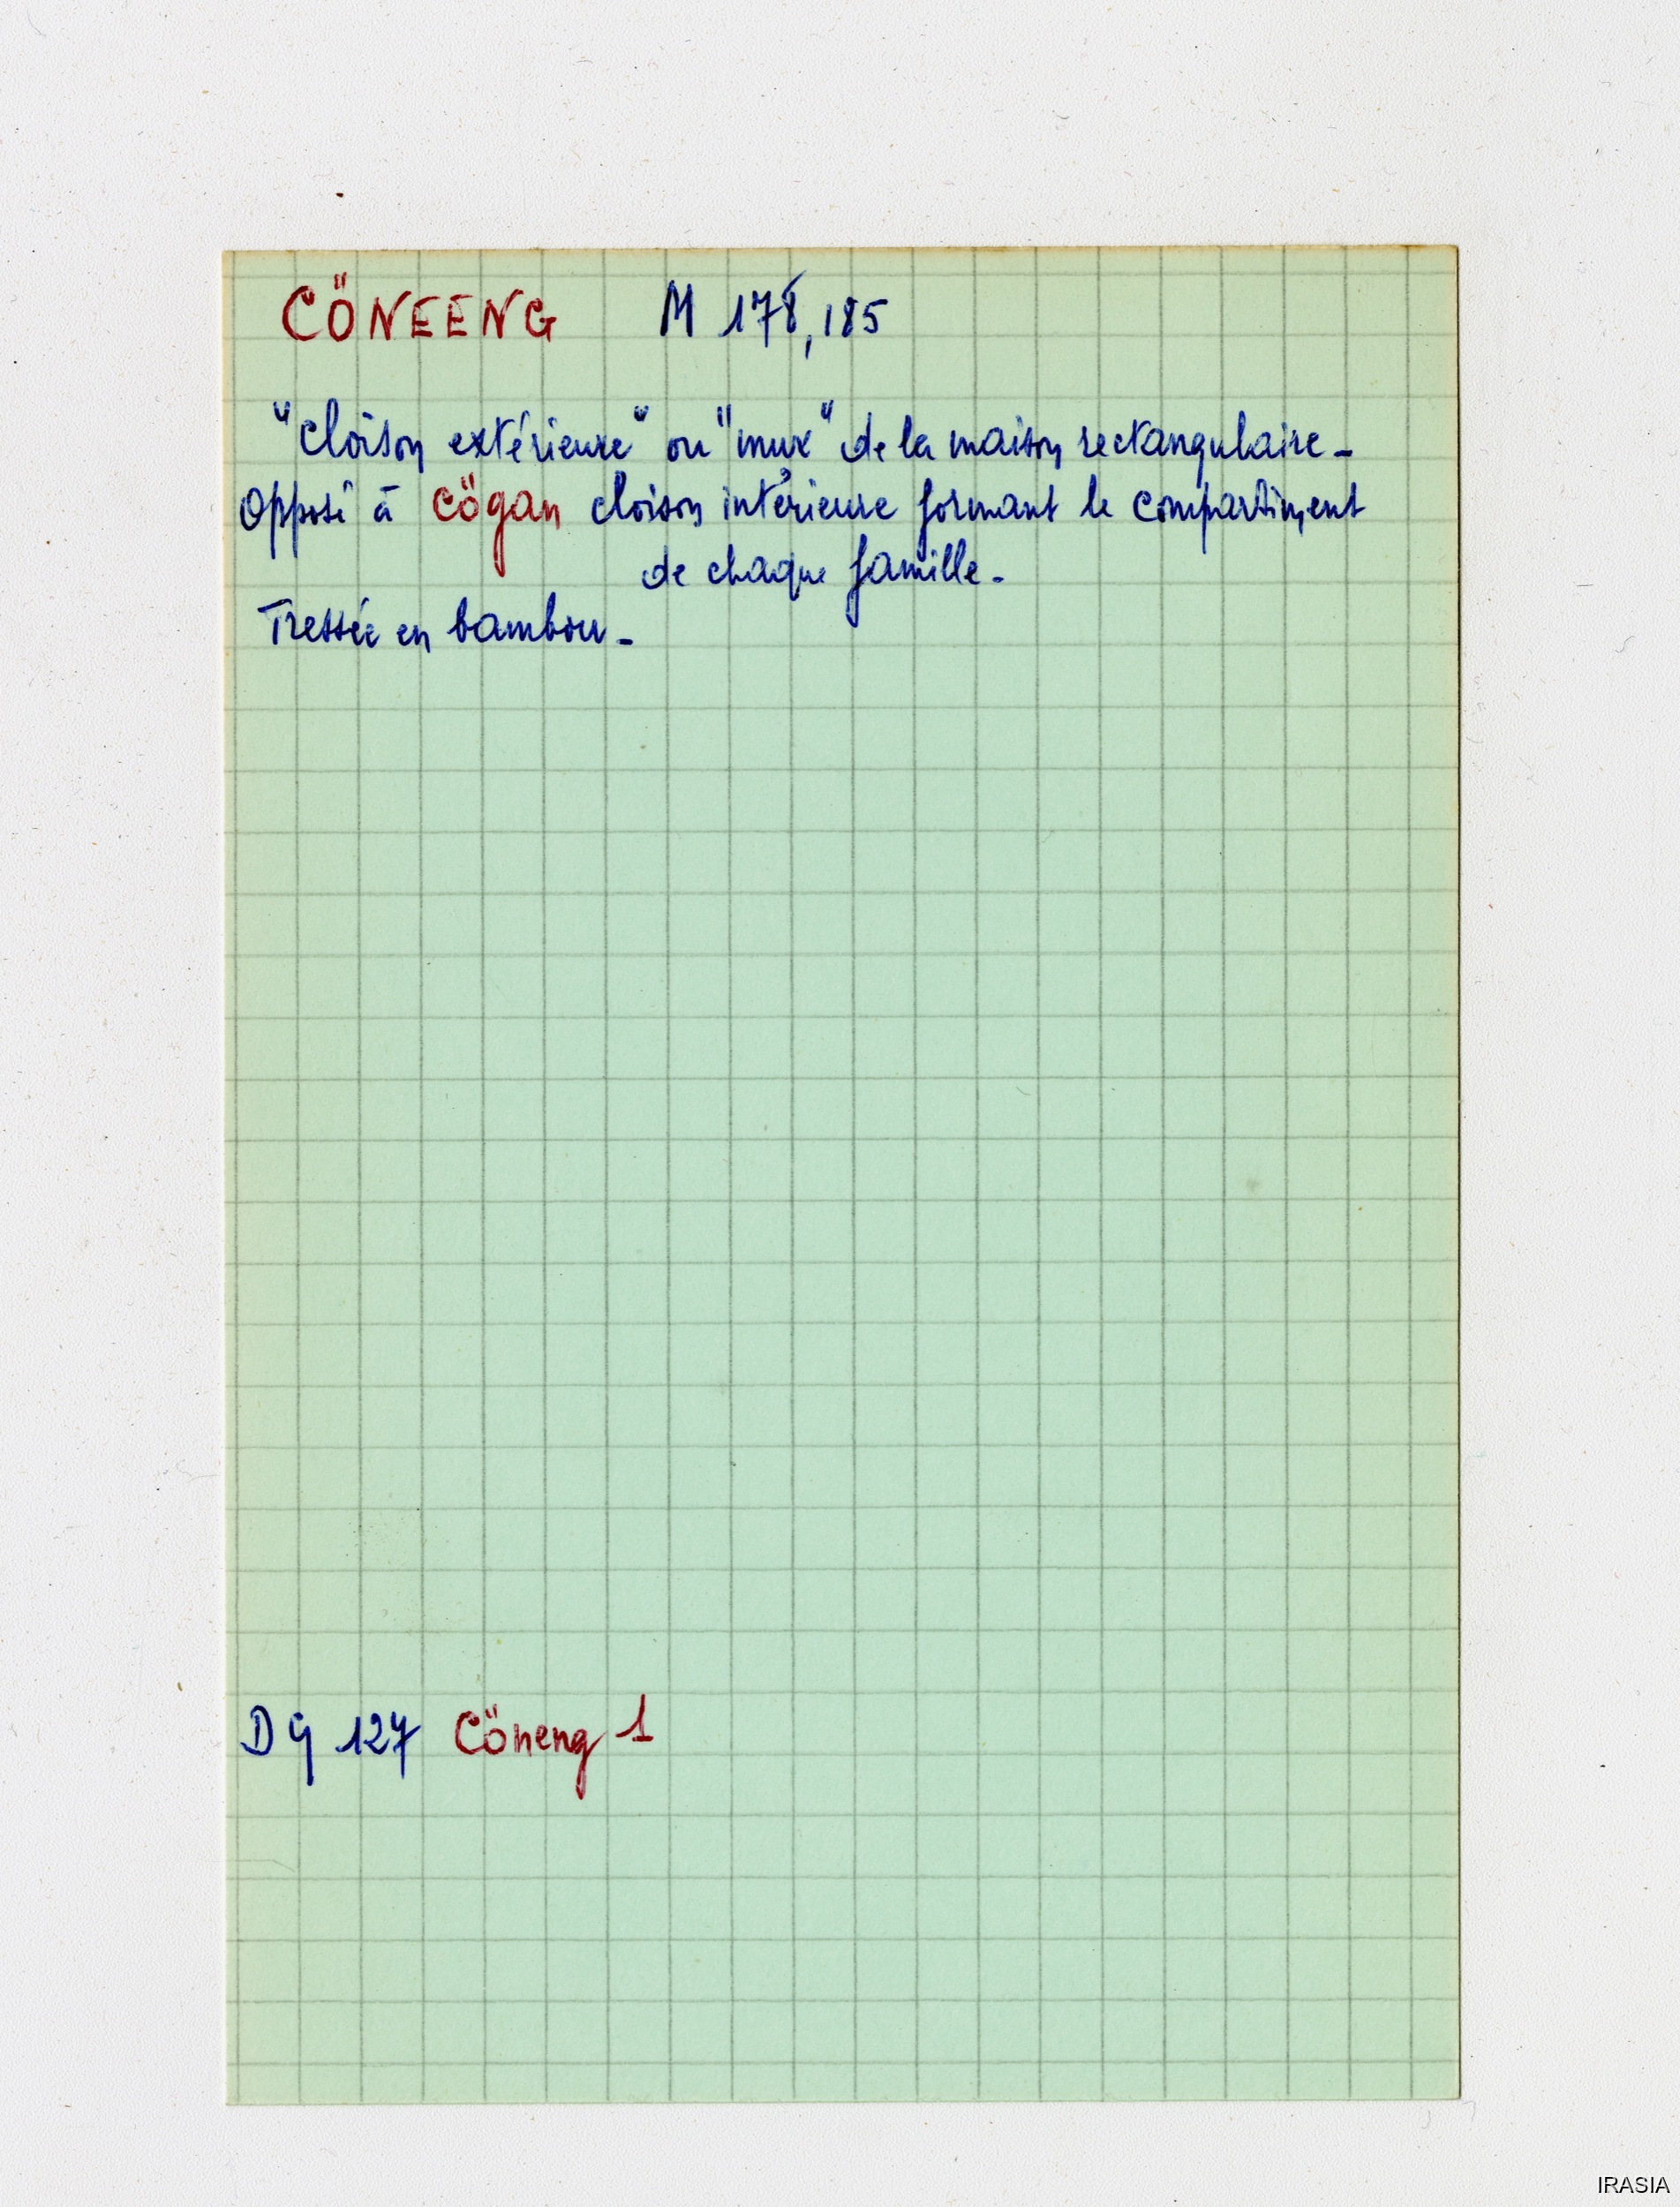 CÖNEENG M 178, 185
"cloison extérieure" ou "mur" de la maison rectangulaire -
Opposé à cögan cloison intérieure formant le compartiment
de chaque famille -
Tressée en bambou -
DG 127 Cöneng 1
IRASIA